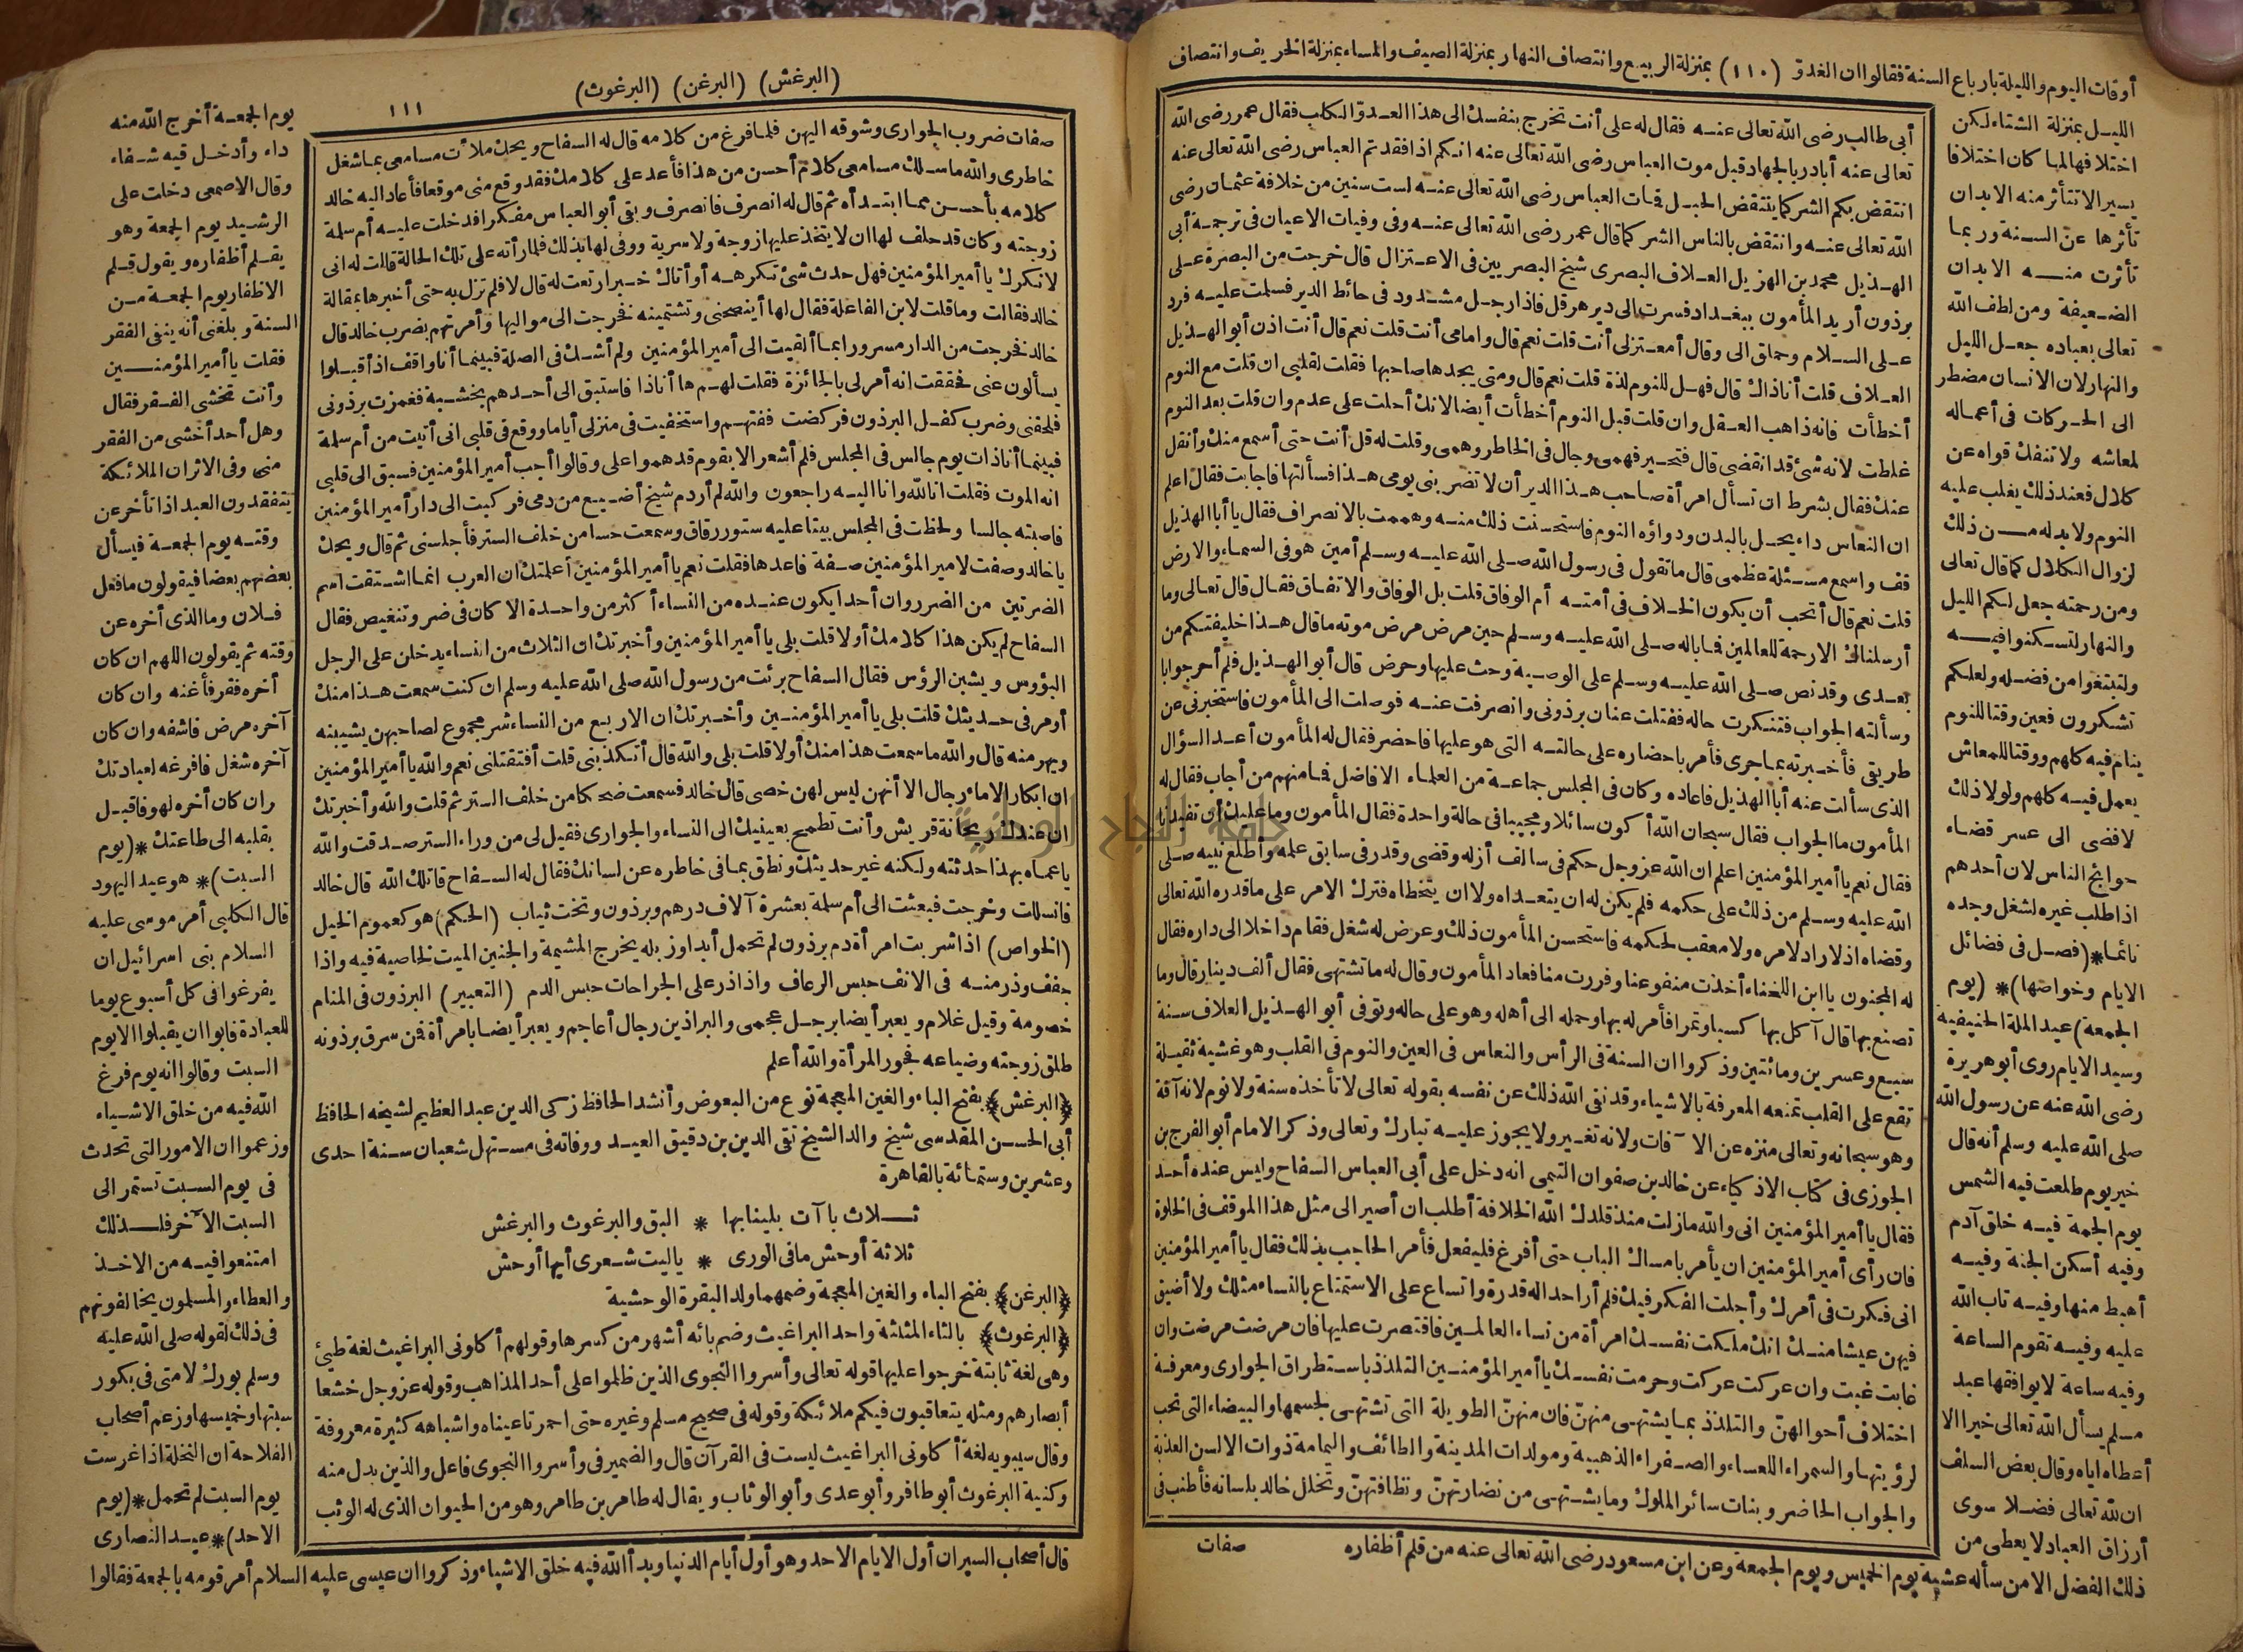 أوقات اليوم والليلة بارباع السنة فقالوا ان الغدوّ (١١٠) بمنزلة الربيع وانتصاف النهار بمنزلة الصيف والمساء بمنزلة الخريف وانتصاف
أبي طالب رضى الله تعالى عنه فقال له على أنت تخرج بنفسك الى هذا العدوّ الكلب فقال عمر رضى الله
تعالى عنه أبادر بالجهاد قبل موت العباس رضى الله تعالى عنه انكم اذا فقدتم العباس رضى الله تعالى عنه
انتقض بكم الشر كما ينتقض الحبل فمات العباس رضى الله تعالى عنه لست سنين من خلافة عثمان رضى
الله تعالى عنه وانتقض بالناس الشر كما قال عمر رضى الله تعالى عنه وفى وفيات الاعيان فى ترجمة أبى
الهذيل محمد بن الهزيل العلاف البصرى شيخ البصريين فى الاعتزال قال خرجت من البصرة على
برذون أريد المأمون ببغداد فسرت الى دير هرقل فاذا رجل مشدود فى حائط الدير فسلمت عليه فرد
على السلام وحملق الى وقال أمعتزلى أنت قلت نعم قال وامامى أنت قلت نعم قال أنت اذن أبو الهذيل
العلاف قلت أنا ذاك قال فهل للنوم لذة قلت نعم قال ومتى يجدها صاحبها فقلت لقلبى ان قلت مع النوم
أخطأت فانه ذاهب العقل وان قلت قبل النوم أخطأت أيضا لانك أحلت على عدم وان قلت بعد النوم
غلطت لانه شئ قد انقضى قال فتحير فهمى وجال فى الخاطر وهمى وقلت له قل أنت حتى أسمع منك وأنقل
عنك فقال بشرط ان تسأل امرأة صاحب هذا الدير أن لا تضربنى يومى هذا فسألتها فاجابت فقال اعلم
ان النعاس داء يحل بالبدن ودواؤه النوم فاستحسنت ذلك منه وهممت بالانصراف فقال يا أبا الهذيل
قف واسمع مسئلة عظمى قال ما تقول فى رسول الله صلى الله عليه وسلم أمين هو فى السماء والارض
قلت نعم قال أتحب أن يكون الخلاف فى أمته أم الوفاق قلت بل الوفاق والاتفاق فقال قال تعالى وما
أرسلناك الا رحمة للعالمين فما باله صلى الله عليه وسلم حين مرض مرض موته ما قال هذا خليفتكم من
بعدى وقد نص صلى الله عليه وسلم على الوصية وحث عليها وحرض قال أبو الهذيل فلم أحر جوابا
وسألته الجواب فتنكرت حاله فقتلت عنان برذونى وانصرفت عنه فوصلت الى المأمون فاستخبرنى عن
طريقى فأخبرته بما جرى فأمر باحضاره على حالته التى هو عليها فاحضر فقال له المأمون أعد السؤال
الذى سألت عنه أبا الهذيل فاعاده وكان فى المجلس جماعة من العلماء الافاضل فما منهم من أجاب فقال له
المأمون ما الجواب فقال سبحان الله أكون سائلا ومجيبا فى حالة واحدة فقال المأمون وما عليك أن تفيدنا
فقال نعم يا أمير المؤمنين اعلم ان الله عز وجل حكم فى سالف أزله وقضى وقدر فى سابق علمه وأطلع نبيه صلى
الله عليه وسلم من ذلك على حكمه فلم يكن له ان يتعداه ولا ان يتخطاه فترك الامر على ما قدره الله تعالى
وقضاه اذ لا راد لامره ولا معقب لحكمه فاستحسن المأمون ذلك وعرض له شغل فقام داخلا الى داره فقال
له المجنون يا ابن اللخناء أخذت منفوعنا وفررت منا فعاد المأمون وقال له ما تشتهى فقال ألف دينار قال وما
تصنع بها قال آكل بها كسبا وتمرا فأمر له بها وحمله الى أهله وهو على حاله وتوفى أبو الهذيل العلاف سنة
سبع وعشرين ومائتين وذكروا ان السنة فى الرأس والنعاس فى العين والنوم فى القلب وهو غشية ثقيلة
تقع على القلب تمنعه المعرفة بالاشياء وقد نفى الله ذلك عن نفسه بقوله تعالى لا تأخذه سنة ولا نوم لانه آفة
وهو سبحانه وتعالى منزه عن الآفات ولانه تغير ولا يجوز عليه تبارك وتعالى وذكر الامام أبو الفرج بن
الجوزى فى كتاب الاذكياء عن خالد بن صفوان التيمى انه دخل على أبى العباس السفاح وليس عنده أحد
فقال يا أمير المؤمنين انى والله ما زلت منذ قلدك الله الخلافة أطلب ان أصير الى مثل هذا الموقف فى الخلوة
فان رأى أمير المؤمنين ان يأمر بامساك الباب حتى أفرغ فليفعل فأمر الحاجب بذلك فقال يا أمير المؤمنين
انى فكرت فى أمرك وأجلت الفكر فيك فلم أر احدا له قدرة واتساع على الاستمتاع بالنساء مثلك ولا أضيق
فيهن عيشا منك انك ملكت نفسك امرأة من نساء العالمين فاقتصرت عليها فان مرضت مرضت وان
غابت غبت وان عركت عركت وحرمت نفسك يا أمير المؤمنين التلذذ باستطراق الجوارى ومعرفة
اختلاف أحوالهنّ والتلذذ بما يشتهى منهنّ فان منهنّ الطويلة التى تشتهى لجسمها والبيضاء التى تحب
لرؤيتها والسمراء اللعساء والصفراء الذهبية ومولدات المدينة والطائف واليمامة ذوات الالسن العذبة
والجواب الحاضر وبنات سائر الملوك وما يشتهى من نضارتهنّ ونظافتهنّ وتخلل خالد بلسانه فأطنب فى
الليل بمنزلة الشتاء لكن
اختلافها لما كان اختلافا
يسيرا لا تتأثر منه الابدان
تأثرها عن السنة وربما
تأثرت منه الابدان
الضعيفة ومن لطف الله
تعالى بعباده جعل الليل
والنهار لان الانسان مضطر
الى الحركات فى أعماله
لمعاشه ولا تنفك قواه عن
كلال فعند ذلك يغلب عليه
النوم ولا بد له من ذلك
لزوال الكلال كما قال تعالى
ومن رحمته جعل لكم الليل
والنهار لتسكنوا فيه
ولتبتغوا من فضله ولعلكم
تشكرون فعين وقتا للنوم
ينام فيه كلهم ووقتا للمعاش
يعمل فيه كلهم ولولا ذلك
لافضى الى عسر قضاء
حوائج الناس لان أحدهم
اذا طلب غيره لشغل وجده
نائما *(فصل فى فضائل
الايام وخواصها)* (يوم
الجمعة) عيد الملة الحنيفية
وسيد الايام روى أبو هريرة
رضى الله عنه عن رسول الله
صلى الله عليه وسلم أنه قال
خير يوم طلعت فيه الشمس
يوم الجمعة فيه خلق آدم
وفيه أسكن الجنة وفيه
أهبط منها وفيه تاب الله
عليه وفيه تقوم الساعة
وفيه ساعة لا يوافقها عبد
مسلم يسأل الله تعالى خيرا الا
أعطاه اياه وقال بعض السلف
ان لله تعالى فضلا سوى
أرزاق العباد لا يعطى من
ذلك الفضل الا من سأله عشية يوم الخميس ويوم الجمعة وعن ابن مسعود رضى الله تعالى عنه من قلم أظفاره
صفات
(البرغش) (البرغن) (البرغوث) ١١١
صفات ضروب الجوارى وشوقه اليهن فلما فرغ من كلامه قال له السفاح ويحك ملأت مسامعى بما شغل
خاطرى والله ما سلك مسامعى كلام أحسن من هذا فأعد على كلامك فقد وقع منى موقعا فأعاد اليه خالد
كلامه بأحسن مما ابتدأه ثم قال له انصرف فانصرف وبقى أبو العباس مفكرا فدخلت عليه أم سلمة
زوجته وكان قد حلف لها ان لا يتخذ عليها زوجة ولا سرية ووفى لها بذلك فلما رأته على تلك الحالة قالت له انى
لانكرك يا أمير المؤمنين فهل حدث شئ تكرهه أو أتاك خبر ارتعت له قال لا فلم تزل به حتى أخبرها بمقالة
خالد فقالت وما قلت لابن الفاعلة فقال لها أينصحنى وتشتمينه فخرجت الى مواليها وأمرتهم بضرب خالد قال
خالد فخرجت من الدار مسرورا بما ألقيت الى أمير المؤمنين ولم أشك فى الصلة فبينما أنا واقف اذ أقبلوا
يسألون عنى فحققت انه أمر لى بالجائزة فقلت لهم ها أنا ذا فاستبق الى أحدهم بخشبة فغمزت برذونى
فلحقنى وضرب كفل البرذون فركضت ففتهم واستخفيت فى منزلى أياما ووقع فى قلبى انى أتيت من أم سلمة
فبينما أنا ذات يوم جالس فى المجلس فلم أشعر الا بقوم قد هجموا على وقالوا أجب أمير المؤمنين فسبق الى قلبى
انه الموت فقلت انا لله وانا اليه راجعون والله لم أر دم شيخ أضيع من دمى فركبت الى دار أمير المؤمنين
فاصبته جالسا ولحظت فى المجلس بيتا عليه ستور رقاق وسمعت حسا من خلف الستر فأجلسنى ثم قال ويحك
يا خالد وصفت لامير المؤمنين صفة فاعدها فقلت نعم يا أمير المؤمنين أعلمتك ان العرب انما اشتقت اسم
الضرتين من الضرر وان أحدا يكون عنده من النساء أكثر من واحدة الا كان فى ضر وتنغيص فقال
السفاح لم يكن هذا كلامك أولا قلت بلى يا أمير المؤمنين وأخبرتك ان الثلاث من النساء يدخلن على الرجل
البؤوس ويشين الرؤس فقال السفاح برئت من رسول الله صلى الله عليه وسلم ان كنت سمعت هذا منك
أو مر فى حديثك قلت بلى يا أمير المؤمنين وأخبرتك ان الاربع من النساء شر مجموع لصاحبهن يشيبنه
ويهرمنه قال والله ما سمعت هذا منك أولا قلت بلى والله قال أتكذبنى قلت أفتقتلنى نعم والله يا أمير المؤمنين
ان ابكار الاماء رجال الا أنهن ليس لهن خصى قال خالد فسمعت ضحكا من خلف الستر ثم قلت والله وأخبرتك
ان عندك ريحانة قريش وأنت تطمح بعينيك الى النساء والجوارى فقيل لى من وراء الستر صدقت والله
يا عماه بهذا حدثته ولكنه غير حديثك ونطق بما فى خاطره عن لسانك فقال له السفاح قاتلك الله قال خالد
فانسللت وخرجت فبعثت الى أم سلمة بعشرة آلاف درهم وبرذون وتخت ثياب (الحكم) هو كعموم الخيل
(الخواص) اذا شربت امرأة دم برذون لم تحمل أبدا وزبله يخرج المشيمة والجنين الميت لخاصية فيه واذا
جفف وذر منه فى الانف حبس الرعاف واذا ذر على الجراحات حبس الدم (التعبير) البرذون فى المنام
خصومة وقيل غلام ويعبر أيضا برجل عجمى والبراذين رجال أعاجم ويعبر أيضا بامرأة فمن سرق برذونه
طلق زوجته وضياعه فجور المرأة والله أعلم
﴿البرغش﴾ بفتح الباء والغين المعجمة نوع من البعوض وأنشد الحافظ زكى الدين عبد العظيم لشيخه الحافظ
أبى الحسن المقدسى شيخ والد الشيخ تقى الدين بن دقيق العيد ووفاته فى مستهل شعبان سنة احدى
وعشرين وستمائة بالقاهرة
ثلاث باآت بلينا بها * البق والبرغوث والبرغش
ثلاثة أوحش ما فى الورى * يا ليت شعرى أيها أوحش
﴿البرغن﴾ بفتح الباء والغين المعجمة وضمهما ولد البقرة الوحشية
﴿البرغوث﴾ بالثاء المثلثة واحد البراغيث وضم بائه أشهر من كسرها وقولهم أكلونى البراغيث لغة طيئ
وهى لغة ثابتة خرجوا عليها قوله تعالى وأسروا النجوى الذين ظلموا على أحد المذاهب وقوله عز وجل خشعا
أبصارهم ومثله يتعاقبون فيكم ملائكة وقوله فى صحيح مسلم وغيره حتى احمرتا عيناه واشباهه كثيرة معروفة
وقال سيبويه لغة أكلونى البراغيث ليست فى القرآن قال والضمير فى وأسروا النجوى فاعل والذين بدل منه
وكنية البرغوث أبو طافر وأبو عدى وأبو الوثاب ويقال له طامر بن طامر وهو من الحيوان الذى له الوثب
يوم الجمعة أخرج الله منه
داء وأدخل فيه شفاء
وقال الاصمعى دخلت على
الرشيد يوم الجمعة وهو
يقلم أظفاره ويقول قلم
الاظفار يوم الجمعة من
السنة وبلغنى أنه ينفى الفقر
فقلت يا أمير المؤمنين
وأنت تخشى الفقر فقال
وهل أحد أخشى من الفقر
منى وفى الاثر ان الملائكة
يتفقدون العبد اذا تأخر عن
وقته يوم الجمعة فيسأل
بعضهم بعضا فيقولون ما فعل
فلان وما الذى أخره عن
وقته ثم يقولون اللهم ان كان
أخره فقر فأغنه وان كان
آخره مرض فاشفه وان كان
آخره شغل فافرغه لعبادتك
وان كان أخره لهو فاقبل
بقلبه الى طاعتك *(يوم
السبت)* هو عيد اليهود
قال الكلبى أمر موسى عليه
السلام بنى اسرائيل ان
يفرغوا فى كل أسبوع يوما
للعبادة فابوا ان يقبلوا الا يوم
السبت وقالوا انه يوم فرغ
الله فيه من خلق الاشياء
وزعموا ان الامور التى تحدث
فى يوم السبت تستمر الى
السبت الآخر فلذلك
امتنعوا فيه من الاخذ
والعطاء والمسلمون يخالفونهم
فى ذلك لقوله صلى الله عليه
وسلم بورك لامتى فى بكور
سبتها وخميسها وزعم أصحاب
الفلاحة ان النخلة اذا غرست
يوم السبت لم تحمل *(يوم
الاحد)* عيد النصارى
قال أصحاب السير ان أول الايام الاحد وهو أول أيام الدنيا وبدأ الله فيه خلق الاشياء وذكروا ان عيسى عليه السلام أمر قومه بالجمعة فقالوا
جامعة النجاح الوطنية